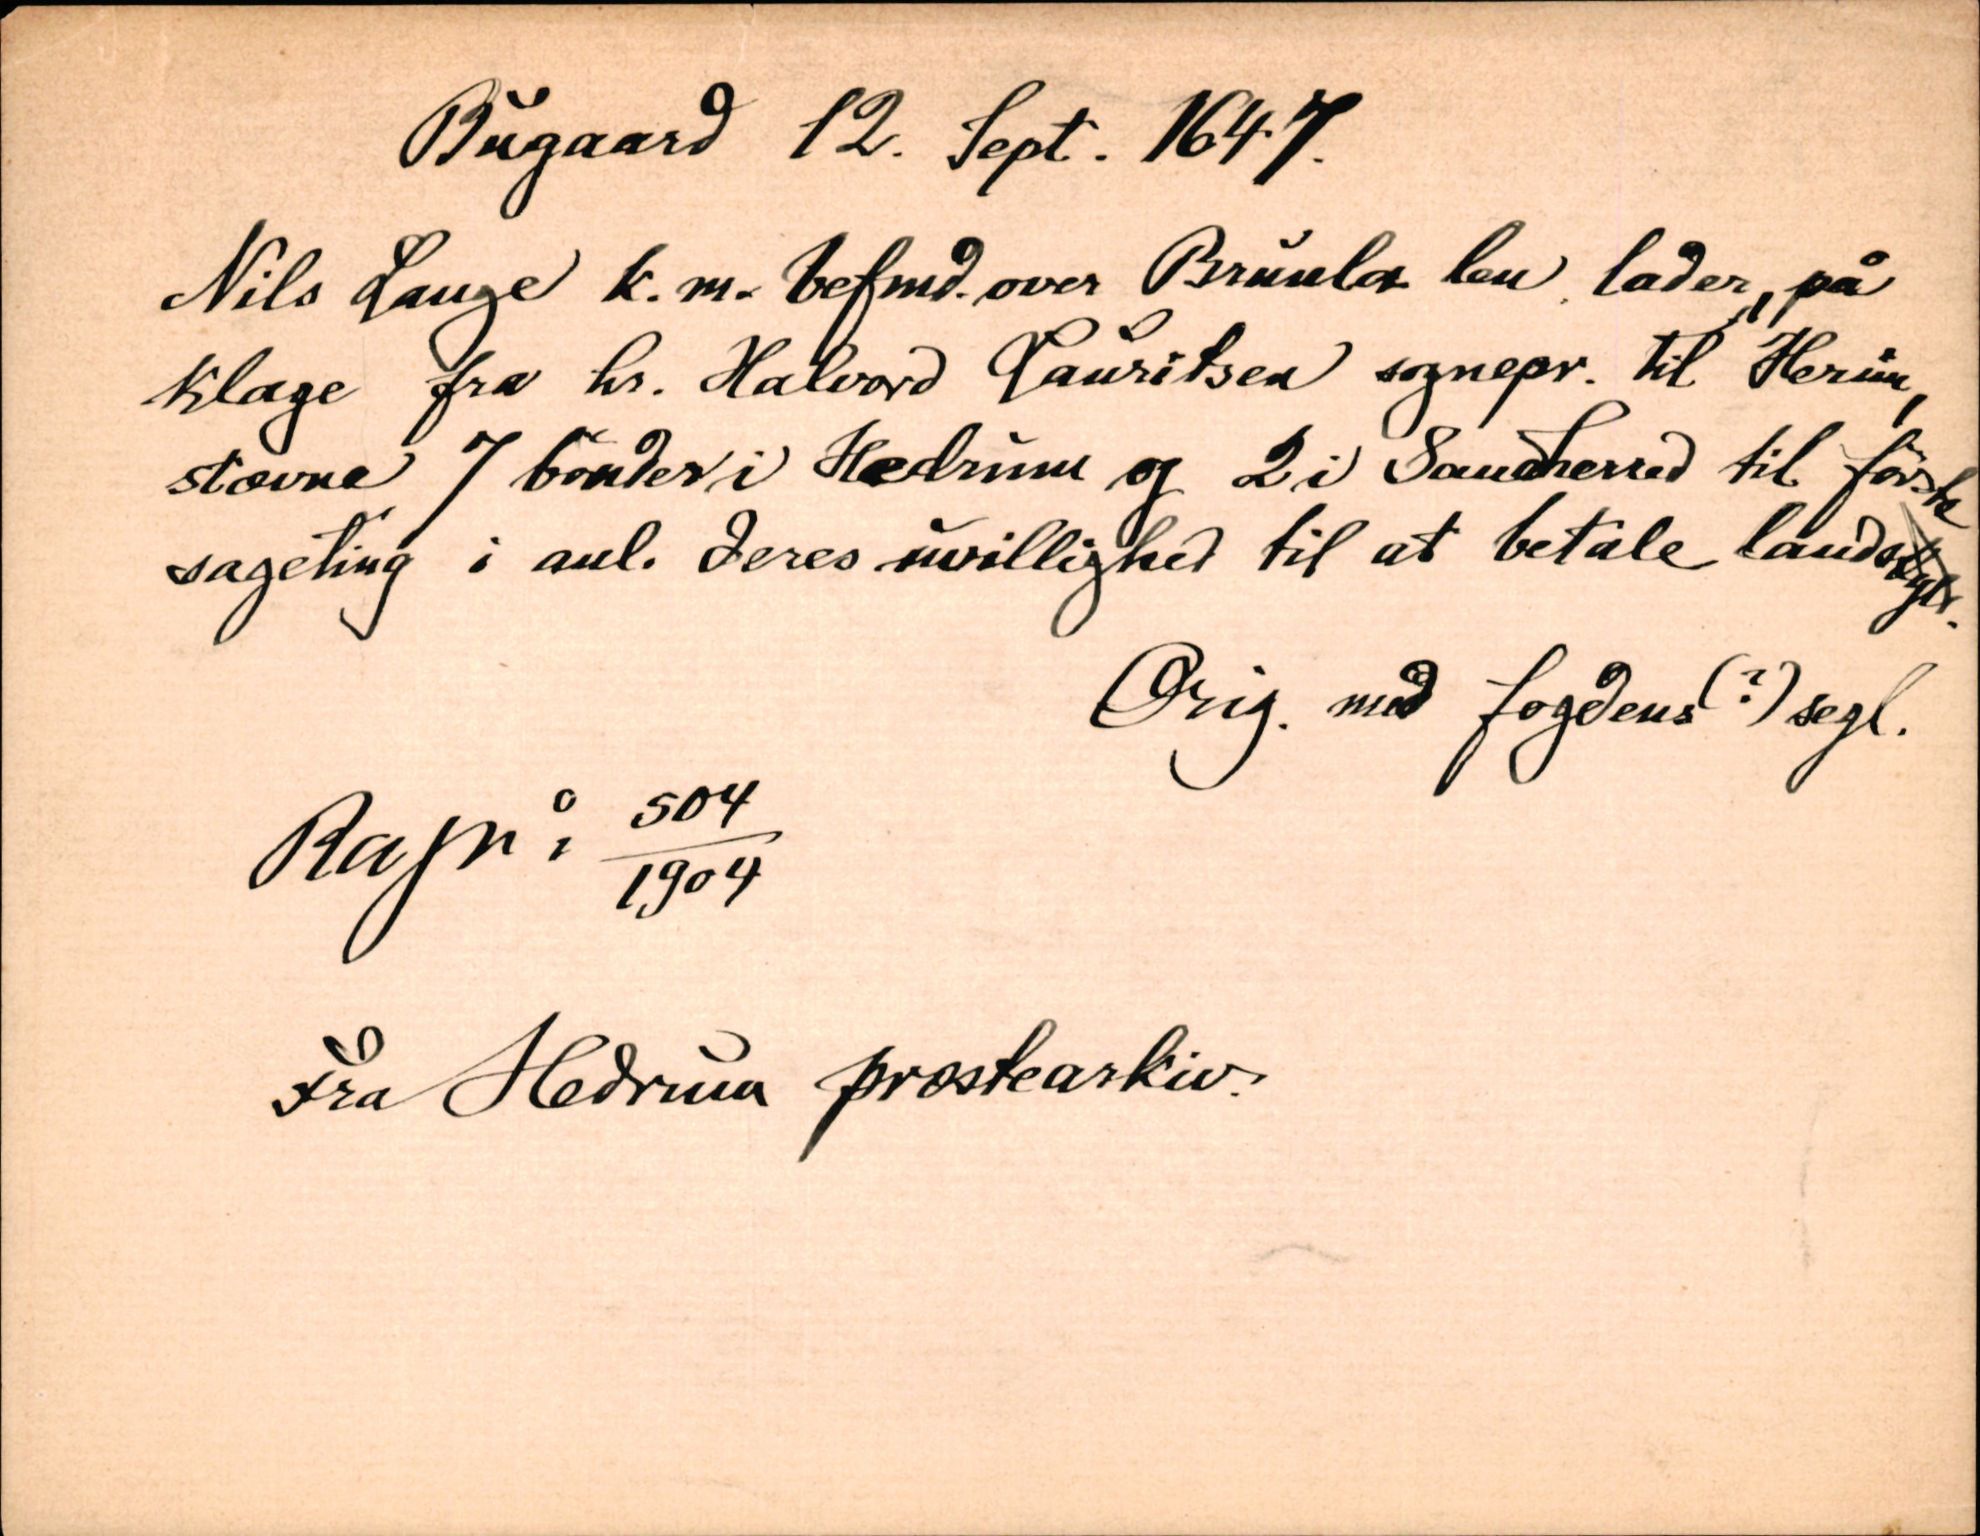 Bugaard 12. Sept. 1647.
Nils Lange k. m. befmd. over Brunla len lader, på
klage fra hr. Halvord Lauritsen sognepr. til Herum,
stævne 7 bönder i Hedrum og 2 i Sandherred til förste
sageting i anl. deres uvillighed til at betale landskyld.
Orig. med fogdens (?) segl.
Ra jnº 504
1904
Fra Hedrum præstearkiv.